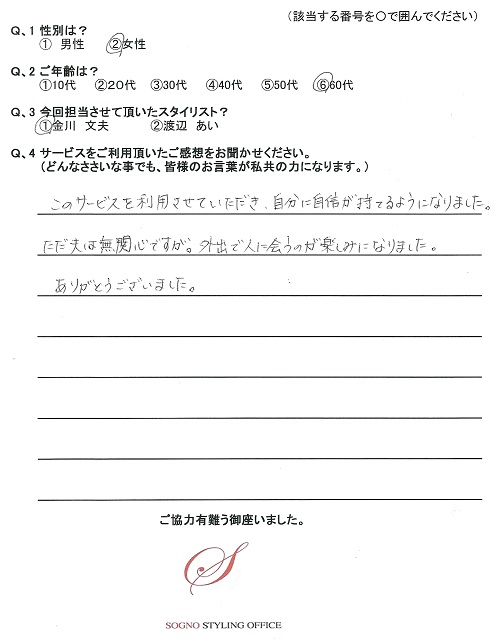 （該当する番号を○で囲んでください）
Q、1 性別は？
① 男性　②女性
Q、2 ご年齢は？
①10代　②20代　③30代　④40代　⑤50代　⑥60代
Q、3 今回担当させて頂いたスタイリスト？
①金川　文夫　②渡辺　あい
Q、4 サービスをご利用頂いたご感想をお聞かせください。
（どんなささいな事でも、皆様のお言葉が私共の力になります。）
このサービスを利用させていただき、自分に自信が持てるようになりました。
ただ夫は無関心ですが。外出で人に会うのが楽しみになりました。
ありがとうございました。
ご協力有難う御座いました。
S
SOGNO STYLING OFFICE